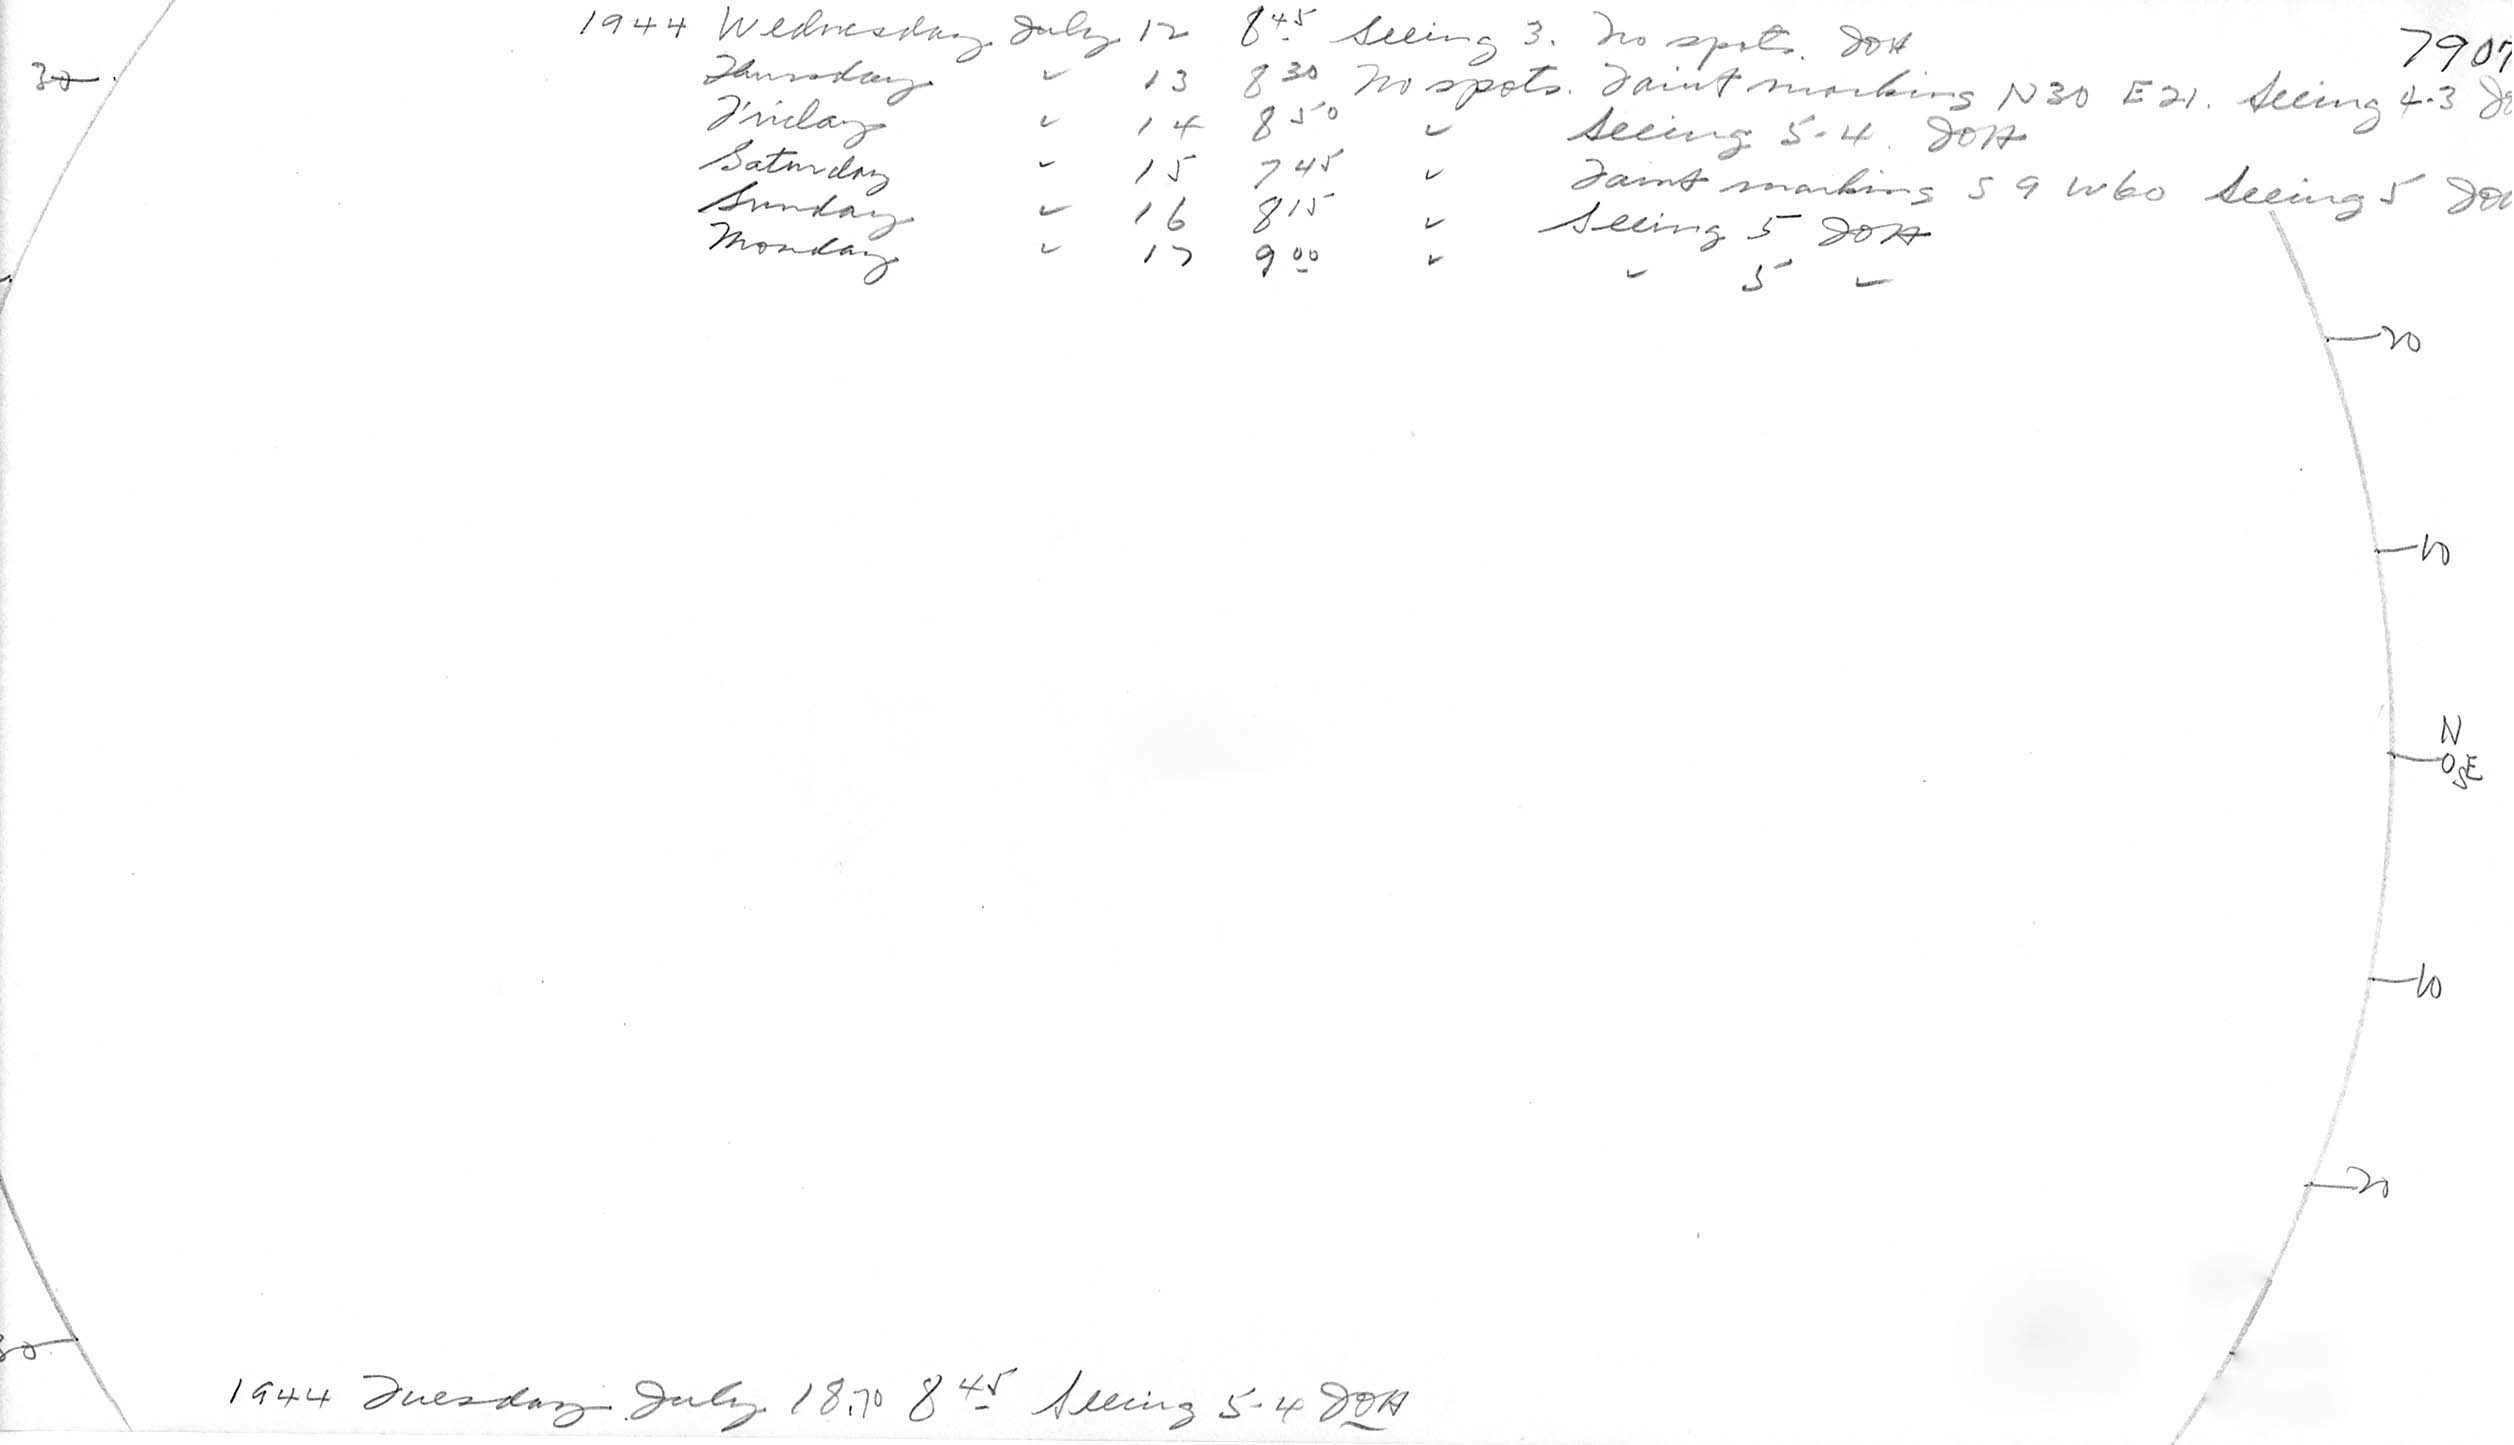 1944 Wednesday July 12 8 45 Seeing 3. No spots. JOH
7907
30
Thursday " 13 8 30 No spots. Faint marking N30 E21. Seeing 4-3
Friday " 14 8 50 " Seeing 5-4. JOH
Saturday " 15 7 45 " Faint marking S 9 W60 Seeing 5 JOH
Sunday " 16 8 15 " Seeing 5 JOH
Monday " 17 9 00 " " 5 "
20
10
N
0 E
S
10
20
30
1944 Tuesday July 18.70 8 45 Seeing 5-4 JOH